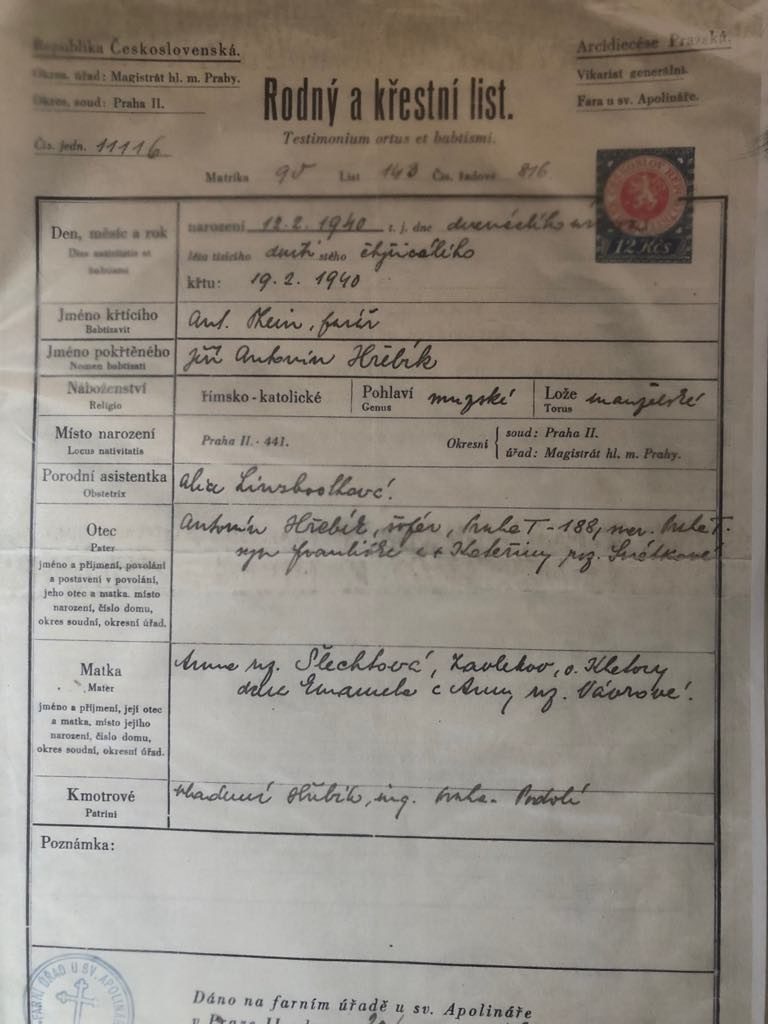 Republika Československá.
Okres. úřad: Magistrát hl. m. Prahy.
Okres. soud: Praha II.
Čís. jedn. 11116
Arcidiecése Pražská.
Vikariát generální.
Fara u sv. Apolináře.
Rodný a křestní list.
Testimonium ortus et babtismi.
Matrika 9v List 143 Čís. řadové 816
12 Kčs
Den, měsíc a rok
Dies nativitatis et
babtismi
narození 12.2. 1940 t. j. dne dvanáctého
léta tisícího devítistého čtyřicátého
křtu: 19.2. 1940
Jméno křtícího
Babtizavit
Ant. Hein, farář
Jméno pokřtěného
Nomen babtisati
Jiří Antonín Hřebík
Náboženství
Religio
římsko-katolické
Pohlaví
Genus
mužské
Lože
Torus
manželské
Místo narození
Locus nativitatis
Praha II. - 441.
Okresní
soud: Praha II.
úřad: Magistrát hl. m. Prahy.
Porodní asistentka
Obstetrix
Otec
Pater
jméno a příjmení, povolání
a postavení v povolání,
jeho otec a matka, místo
narození, číslo domu,
okres soudní, okresní úřad.
Antonín Hřebík, šofér, Praha I - 188, nar. Praha I.
syn Františka a + Kateřiny roz.
Matka
Mater
jméno a příjmení, její otec
a matka, místo jejího
narození, číslo domu,
okres soudní, okresní úřad.
Anna roz. Šlechtová, Zavlekov, o. Klatovy
dcera Emanuela a Anny roz. Vávrové.
Kmotrové
Patrini
Hřebík, ing. Praha - Podolí
Poznámka:
FARNÍ ÚŘAD U SV. APOLINÁŘE
Dáno na farním úřadě u sv. Apolináře
v Praze II.